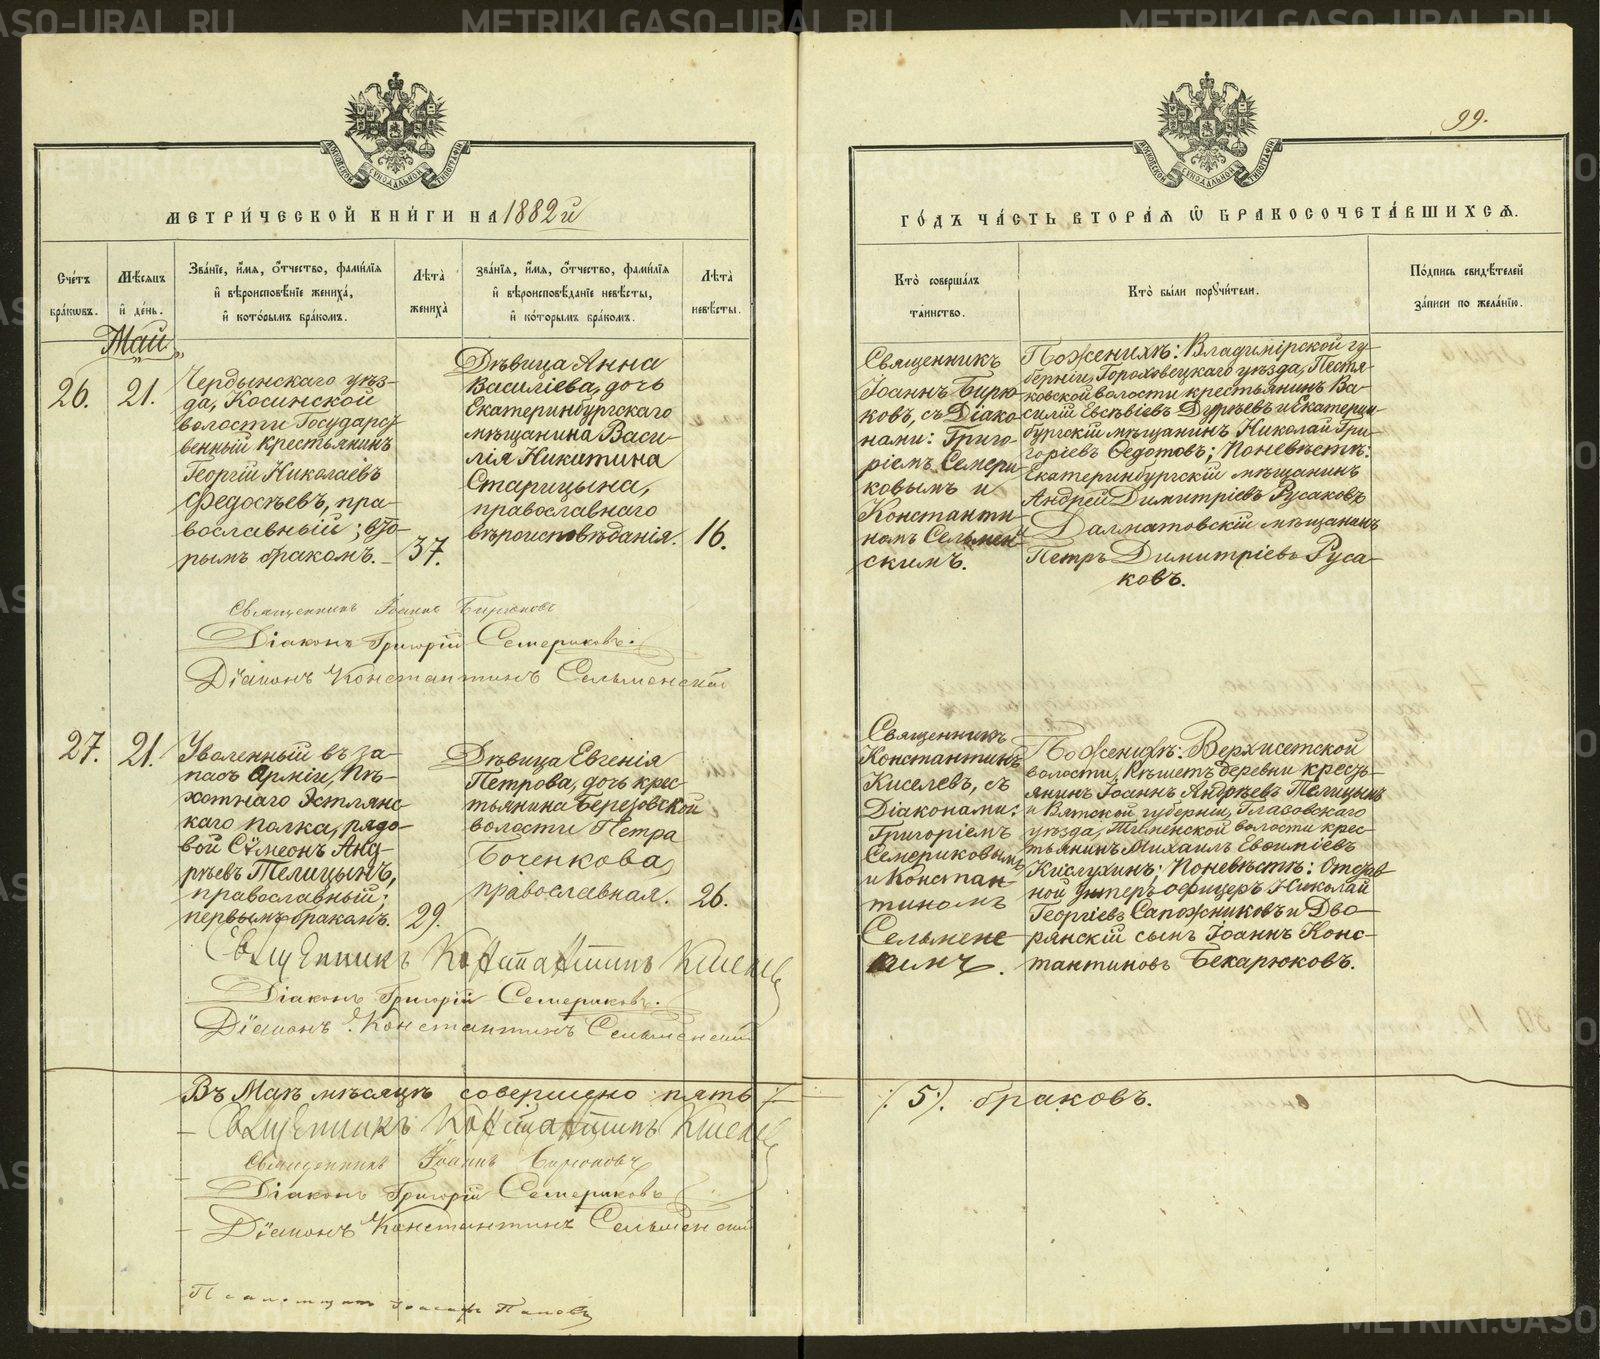 METRIKI.GASO-URAL.RU
99.
МЕТРИ́ЧЕСКОЙ КНИ́ГИ НА 1882й
ГО́ДЪ ЧА́СТЬ ВТОРА́Я Ѿ БРАКОСОЧЕТА́ВШИХСЯ.
Сче́тъ бра́ковъ.
Мѣ́сяцъ и де́нь.
Зва́нїе, и́мя, о́тчество, фами́лїя
и вѣроисповѣ́нїе жениха́,
и кото́рымъ бра́комъ.
Лѣта̀ жениха̀
зва́нїя, и́мя, о́тчество, фами́лїя
и вѣроисповѣ́данїе невѣ́сты,
и ко́торымъ бра́комъ.
Лѣта̀ невѣ́сты.
Кто̀ соверша́лъ
та́инство.
Кто̀ бы́ли порꙋчи́тели.
По́дпись свидѣ́телей
за́писи по жела́нїю.
Май
26.
21.
Чердынскаго уѣз-
да, Косинской
волости Государст
венный крестьянинъ
Георгій Николаевъ
Федосѣевъ, пра-
вославный; вто-
рымъ бракомъ.
37.
Дѣвица Анна
Василіева, дочь
Екатеринбургскаго
мѣщанина Васи-
лія Никитина
Старицына,
православнаго
вѣроисповѣданія.
16.
Священникъ
Іоаннъ Бирю
ковъ, съ Діако-
нами: Григо-
ріемъ Семери
ковымъ и
Константи
номъ Сельмен
скимъ.
По женихѣ: Владимірской гу-
берніи, Гороховецкаго уѣзда, Пестя-
ковской волости крестьянинъ Ва-
силій Евсѣвіевъ и Екатерин-
бургскій мѣщанинъ Николай Гри-
горіевъ Ѳедотовъ; По невѣстѣ:
Екатеринбургскій мѣщанинъ
Андрей Димитріевъ Русаковъ
и Далматовскій мѣщанинъ
Петръ Димитріевъ Руса-
ковъ.
Священникъ Іоаннъ Бирюковъ
Діаконъ Григорій Семериковъ.
Діаконъ Константинъ Сельменскій
27.
21.
Уволенный въ за-
пасъ Арміи, Пѣ-
хотнаго Эстлянс
каго полка, рядо-
вой Сѵмеонъ Анд-
рѣевъ Телицынъ,
православный;
первымъ бракомъ.
29.
Дѣвица Евгенія
Петрова, дочь крес
тьянина Березовской
волости Петра
Боченкова,
православная.
26.
Священникъ
Константинъ
Киселевъ, съ
Діаконами:
Григоріемъ
Семериковымъ
и Констан-
тиномъ
Сельменс
кимъ.
По женихѣ: Верхисетской
волости, Рѣшетъ деревни кресть-
янинъ Іоаннъ Андрѣевъ Телицынъ
и Вятской губерніи, Глазовскаго
уѣзда, волости крес-
тьянинъ Михаилъ Евѳиміевъ
Кислухинъ; По невѣстѣ: Отстав
ной унтеръ офицеръ Николай
Георгіевъ Сапожниковъ и Дво-
рянскій сынъ Іоаннъ Конс-
тантиновъ Бекарюковъ.
Священникъ Константинъ Киселевъ
Діаконъ Григорій Семериковъ.
Діаконъ Константинъ Сельменскій
Въ Маѣ мѣсяцѣ совершено пять /.5/. браковъ.
Священникъ Константинъ Киселевъ
Священникъ Іоаннъ Бирюковъ
Діаконъ Григорій Семериковъ
Діаконъ Константинъ Сельменскій
Псаломщикъ Іоасафъ Поповъ